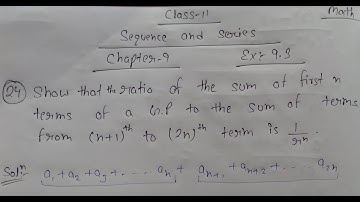 Class-11
Math
Sequence and series
Chapter-9 Ex:- 9.3
24 Show that the ratio of the sum of first n
terms of a G.P to the sum of terms
from (n+1)th to (2n)th term is 1/rⁿ.
Solⁿ a₁+a₂+a₃+.....aₙ + aₙ₊₁+aₙ₊₂+.....a₂ₙ